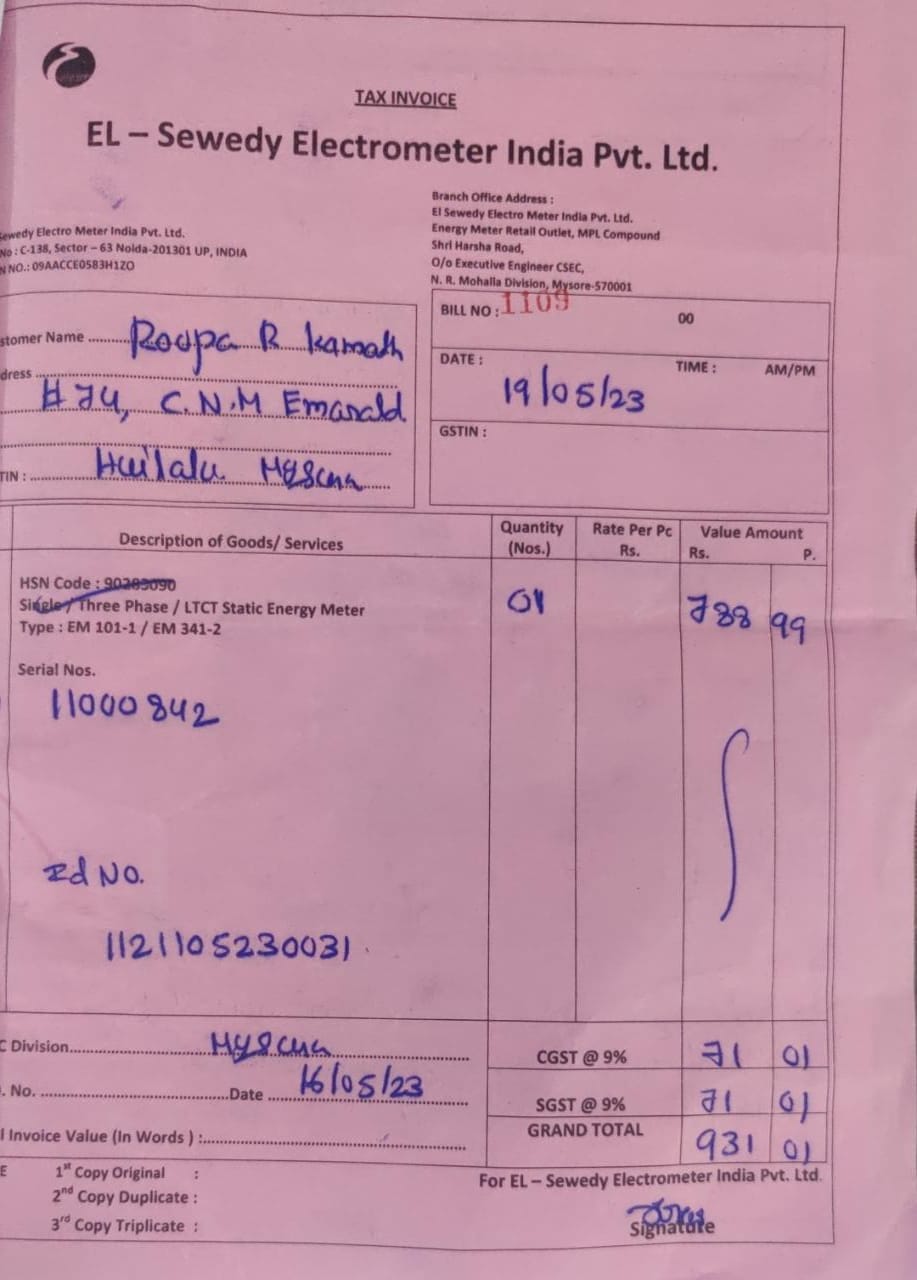 TAX INVOICE
EL – Sewedy Electrometer India Pvt. Ltd.
Sewedy Electro Meter India Pvt. Ltd.
No : C-138, Sector – 63 Noida-201301 UP, INDIA
N NO.: 09AACCE0583H1ZO
Branch Office Address :
El Sewedy Electro Meter India Pvt. Ltd.
Energy Meter Retail Outlet, MPL Compound
Shri Harsha Road,
O/o Executive Engineer CSEC,
N. R. Mohalla Division, Mysore-570001
stomer Name ......... Roopa R Kamath
dress ..........
# 74, C.N.M Emarald
TIN : .......... Huilalu Mysuru
BILL NO : 1109 00
DATE : TIME : AM/PM
19/05/23
GSTIN :
Description of Goods/ Services Quantity (Nos.) Rate Per Pc Rs. Value Amount Rs. P.
HSN Code : 90283090
Single / Three Phase / LTCT Static Energy Meter 01 788 99
Type : EM 101-1 / EM 341-2
Serial Nos.
11000842
Id No.
1121105230031
C Division.......... Mysuru
. No. ..........Date .......... 16/05/23
l Invoice Value (In Words ) :..........
CGST @ 9% 71 01
SGST @ 9% 71 01
GRAND TOTAL 931 01
E 1st Copy Original :
2nd Copy Duplicate :
3rd Copy Triplicate :
For EL – Sewedy Electrometer India Pvt. Ltd.
Signature